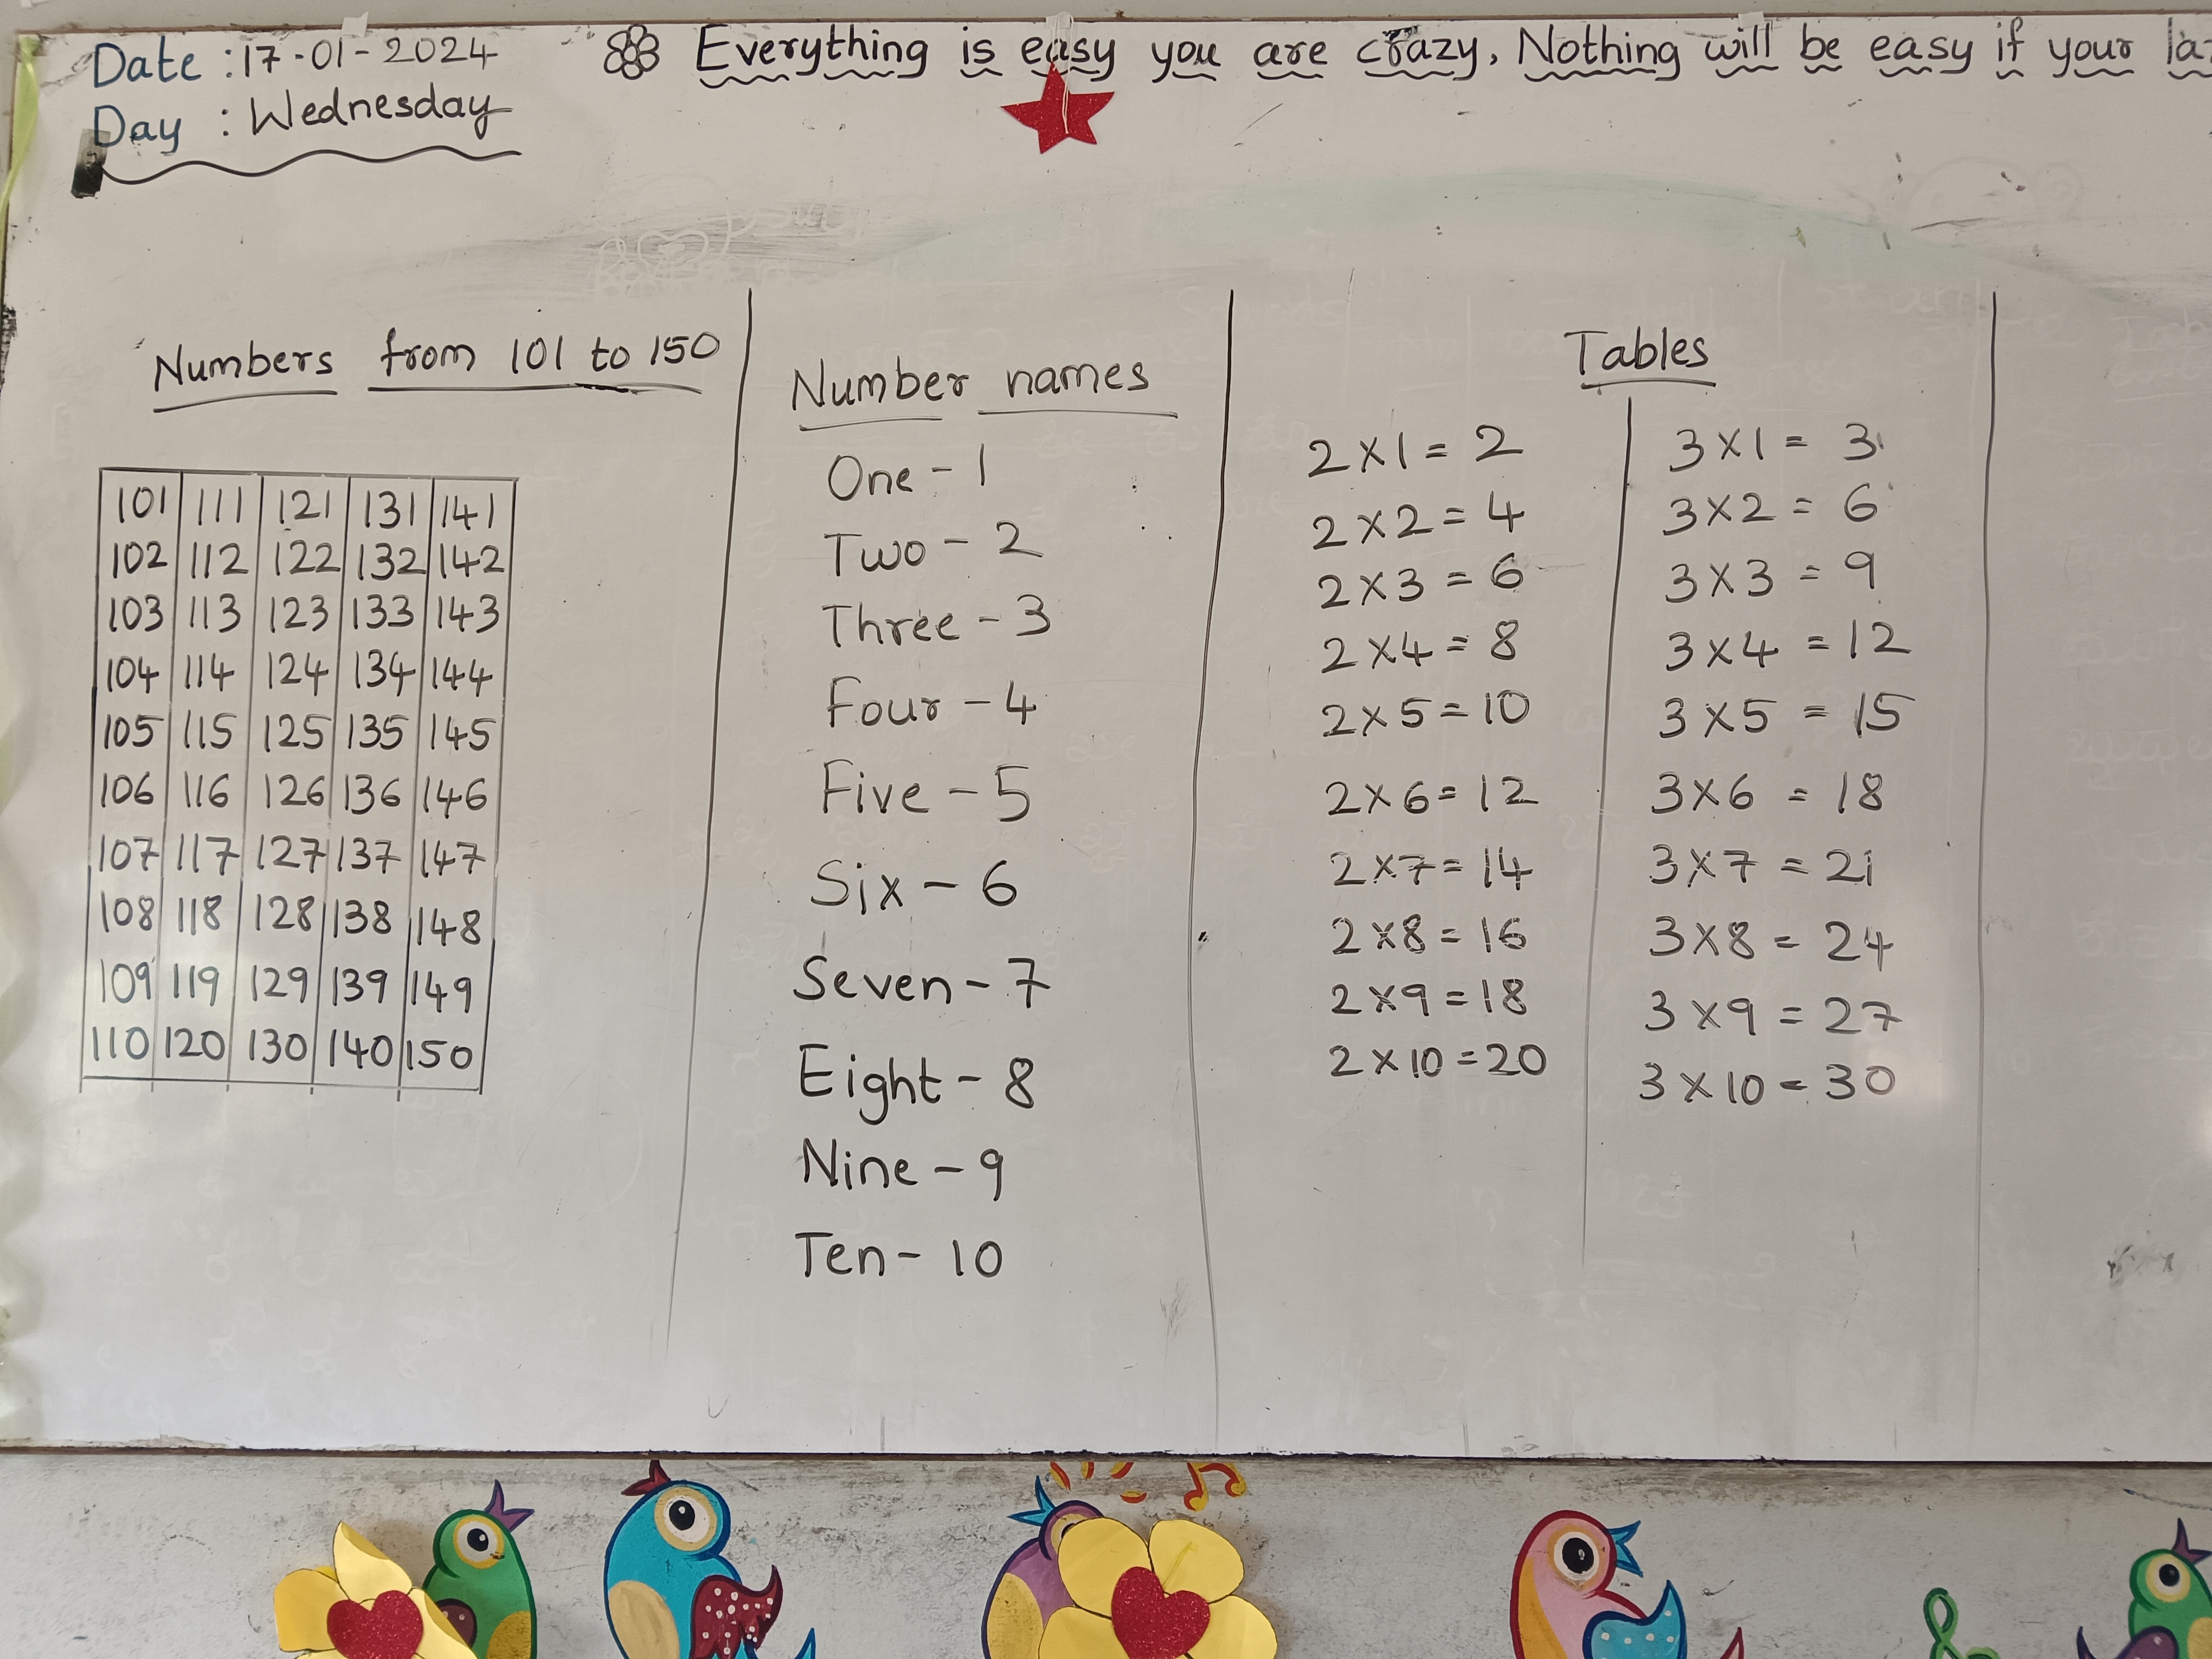 Date : 17-01-2024
Everything is easy you are crazy, Nothing will be easy if your
Day : Wednesday
Numbers from 101 to 150
101 111 121 131 141
102 112 122 132 142
103 113 123 133 143
104 114 124 134 144
105 115 125 135 145
106 116 126 136 146
107 117 127 137 147
108 118 128 138 148
109 119 129 139 149
110 120 130 140 150
Number names
One - 1
Two - 2
Three - 3
Four - 4
Five - 5
Six - 6
Seven - 7
Eight - 8
Nine - 9
Ten - 10
Tables
2 x 1 = 2
2 x 2 = 4
2 x 3 = 6
2 x 4 = 8
2 x 5 = 10
2 x 6 = 12
2 x 7 = 14
2 x 8 = 16
2 x 9 = 18
2 x 10 = 20
3 x 1 = 3
3 x 2 = 6
3 x 3 = 9
3 x 4 = 12
3 x 5 = 15
3 x 6 = 18
3 x 7 = 21
3 x 8 = 24
3 x 9 = 27
3 x 10 = 30